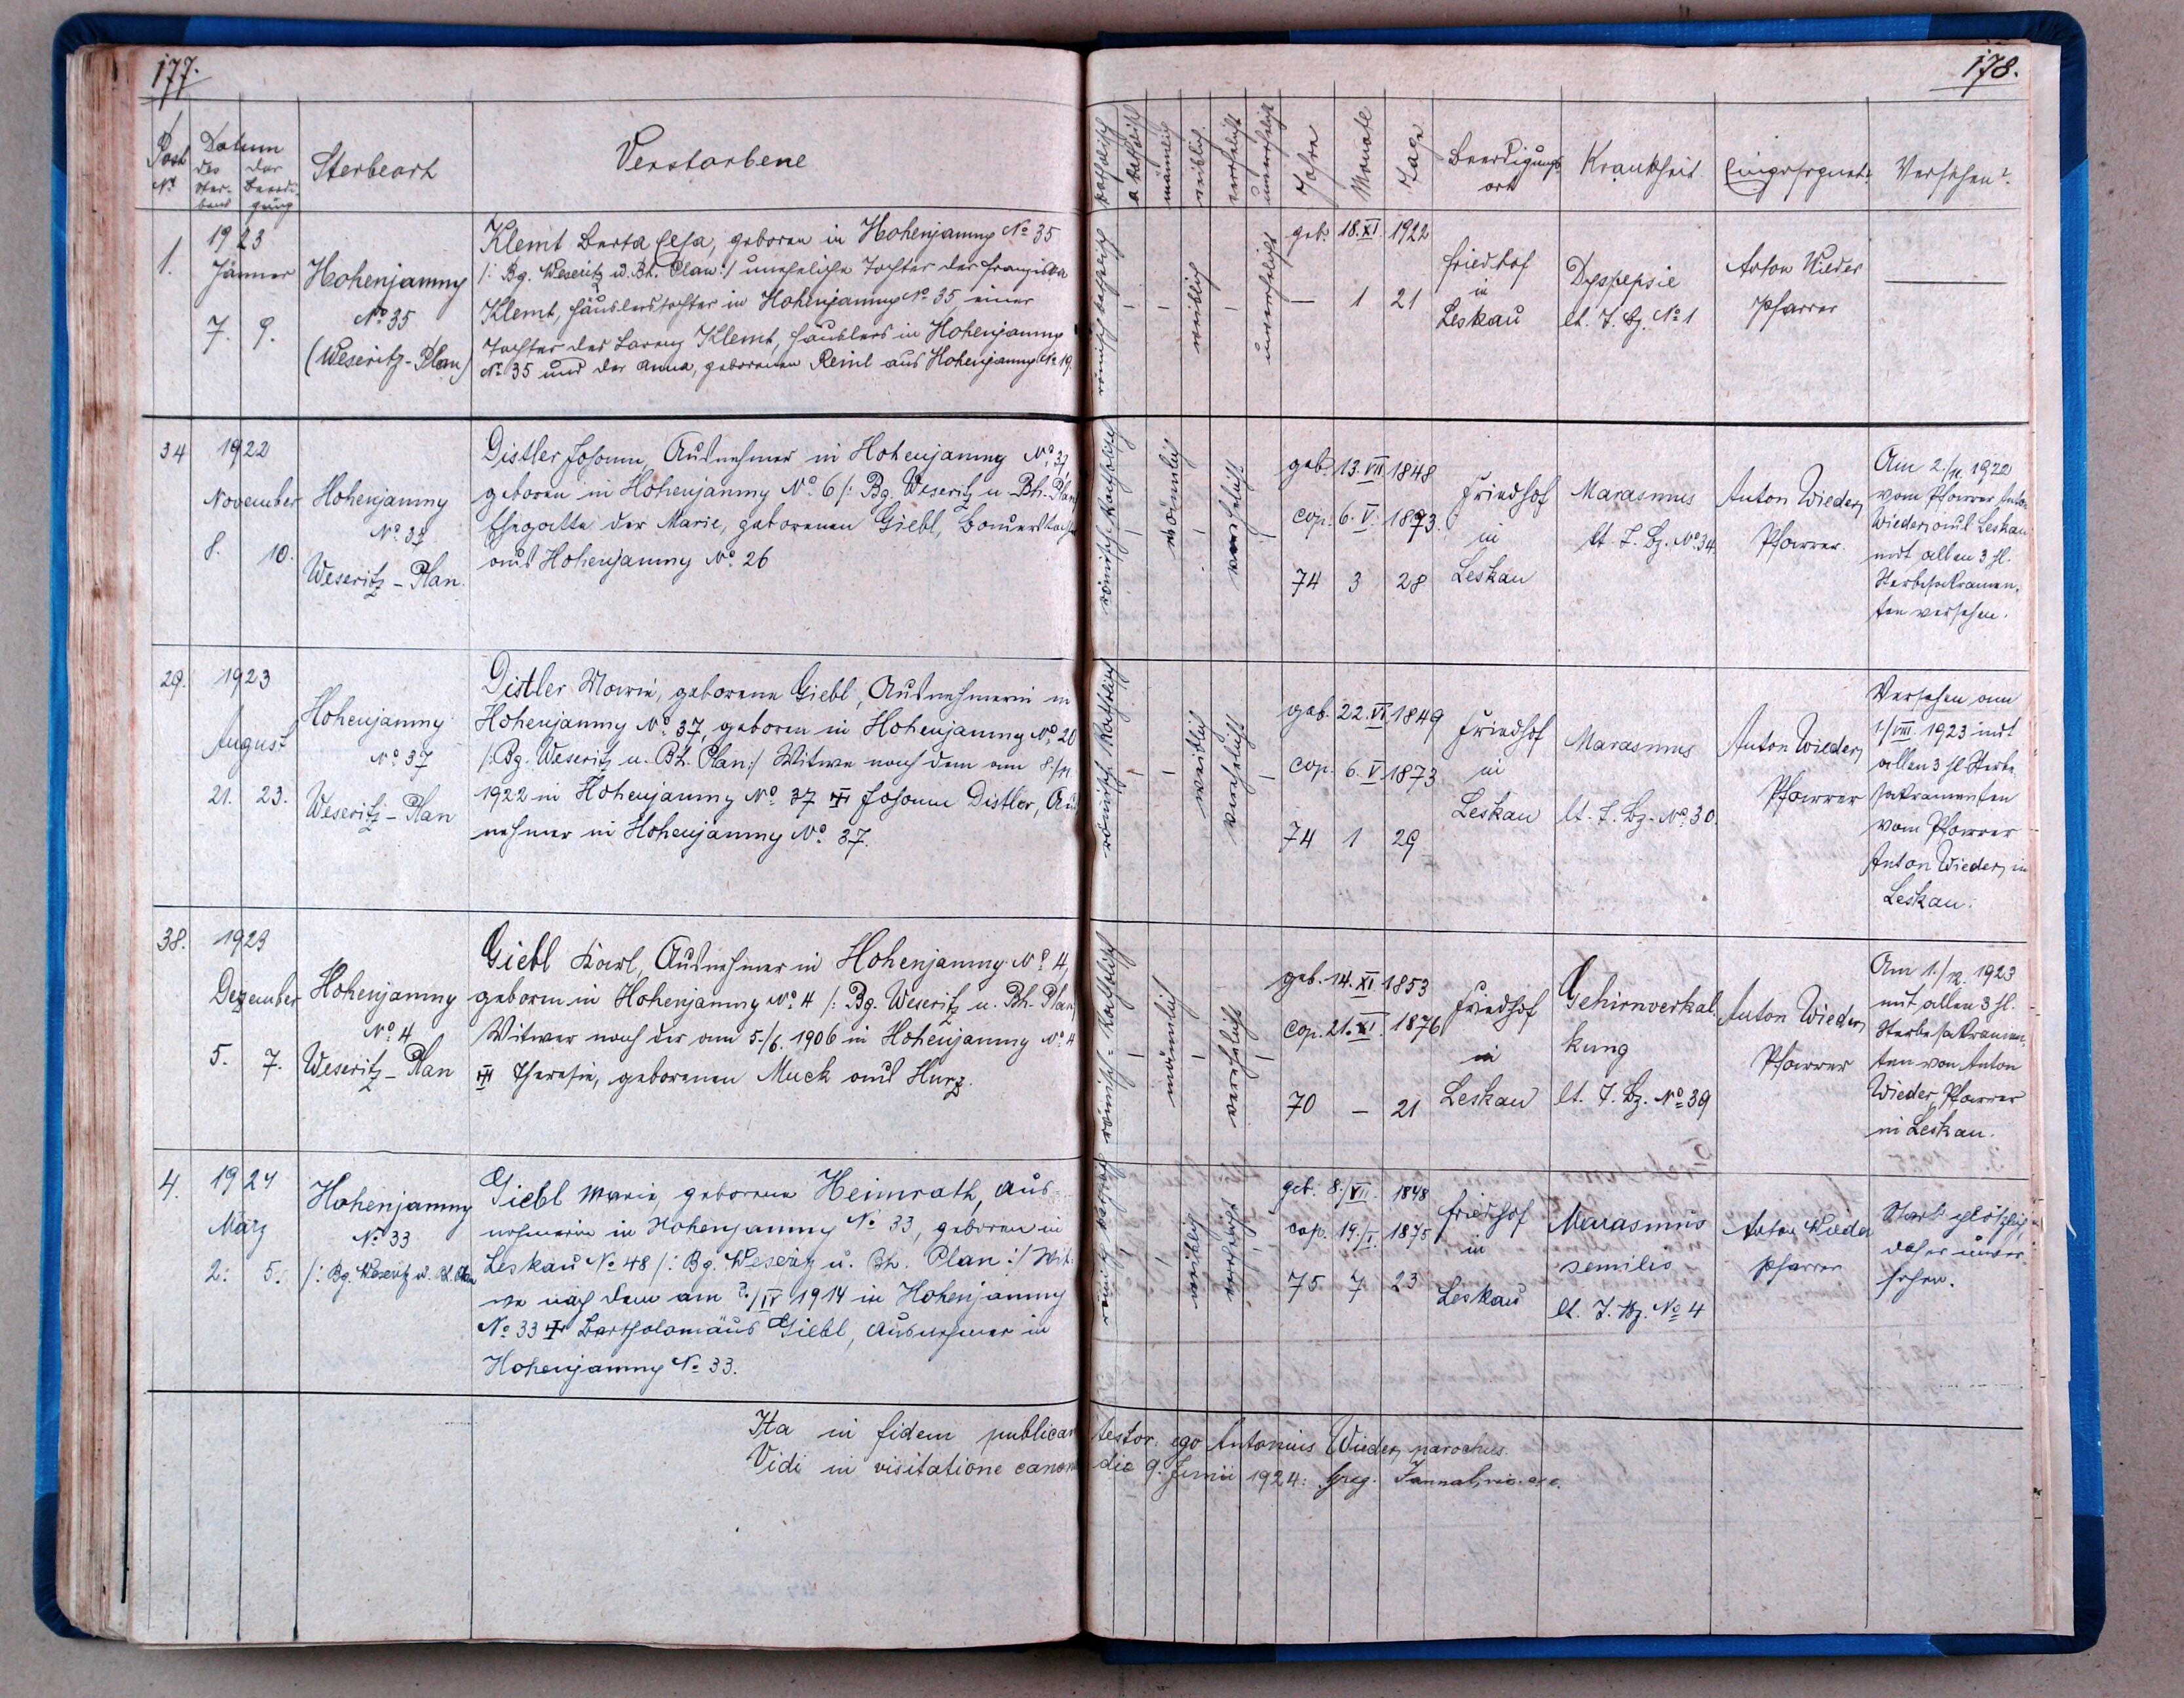 177.
178.
Post No
Datum
des Sterbens
der Beerdigung
Sterbeort
Verstorbene
katholisch
akatholisch
männlich
weiblich
verehelicht
unverehelicht
Jahre
Monate
Tage
Beerdigungsort
Krankheit
Eingesegnet?
Versehen?
1.
1923
Jänner
7. 9.
Hohenjamny
No 35
(Weseritz-Plan)
Klemt Berta Elsa, geboren in Hohenjamny No 35
/: Bg. Weseritz u. Bh. Plan :/ uneheliche Tochter der Franziska
Klemt, Häuslerstochter in Hohenjamny No 35 einer
Tochter des Lorenz Klemt, Häuslers in Hohenjamny
No 35 und der Anna, geborenen Reinl aus Hohenjamny No 19.
römisch katholisch
weiblich
unverehelicht
geb. 18. XI. 1922
— 1 21
Friedhof
in
Leskau
Dyspepsie
lt. T. Bz. No 1
Anton Wieder
Pfarrer
34
1922
November
8. 10.
Hohenjamny
No. 37
Weseritz - Plan.
Distler Johann, Ausnehmer in Hohenjamny No. 37,
geboren in Hohenjamny No. 6 /: Bg. Weseritz u. Bh. Plan
Ehegatte der Marie, geborenen Giebl, Bauerstochter
aus Hohenjamny No. 26
römisch-katholisch
männlich
verehelicht
geb. 13. VII 1848
cop. 6. V. 1873.
74 3 28
Friedhof
in
Leskau
Marasmus
lt. T. Bz. No. 34
Anton Wieder,
Pfarrer.
Am 2./11. 1922
vom Pfarrer Anton
Wieder, aus Leskau
mit allen 3 hl.
Sterbesakramen-
ten versehen.
29.
1923
August
21. 23.
Hohenjamny
No. 37
Weseritz - Plan
Distler Marie, geborene Giebl, Ausnehmerin in
Hohenjamny No. 37, geboren in Hohenjamny No. 20
/: Bg. Weseritz u. Bh. Plan :/ Witwe nach dem am 8./11.
1922 in Hohenjamny No. 37 ✝ Johann Distler, Aus
nehmer in Hohenjamny No. 37.
römisch-katholisch
weiblich
verehelicht
geb. 22. VI. 1849
cop. 6. V 1873
74 1 29
Friedhof
in
Leskau
Marasmus
lt. T. Bz. No. 30.
Anton Wieder,
Pfarrer
Versehen am
1/VIII. 1923 mit
allen 3 hl Sterbe
sakramenten
vom Pfarrer
Anton Wieder, in
Leskau.
38.
1923
Dezember
5. 7.
Hohenjamny
No. 4
Weseritz - Plan
Giebl Karl, Ausnehmer in Hohenjamny No. 4,
geboren in Hohenjamny No. 4 /: Bg. Weseritz u. Bh. Plan,
Witwer nach der am 5./6. 1906 in Hohenjamny No. 4
✝ Theresia, geborenen Muck aus Hurz.
römisch = katholisch
männlich
verehelicht
geb. 14. XI. 1853
cop. 21. XI. 1876
70 — 21
Friedhof
in
Leskau
Gehirnverkal
kung
lt. T. Bz. No 39
Anton Wieder,
Pfarrer
Am 1./12. 1923
mit allen 3 hl.
Sterbesakramen-
ten von Anton
Wieder, Pfarrer
in Leskau.
4.
1924
März
2. 5.
Hohenjamny
No 33
/: Bg. Weseritz u. Bh. Plan
Giebl Maria, geborene Heimrath, Aus-
nehmerin in Hohenjamny No 33, geboren in
Leskau No 48 /: Bg. Weseritz u. Bh. Plan :/ Wit-
we nach dem am 2./IV 1914 in Hohenjamny
No 33 ✝ Bartholomäus Giebl, Ausnehmer in
Hohenjamny No 33.
römisch kathol.
weiblich
verehelicht
geb. 8./VII. 1848
cop. 19./I. 1875
75 7 23
Friedhof
in
Leskau
Marasmus
semilis
lt. T. Bz. No 4
Anton Wieder
Pfarrer
Starb plötzlich,
daher unver
sehen.
Ita in fidem publicam testor: ego Antonius Wieder, parochus.
Vidi in visitatione canon. die 9. Junii 1924: